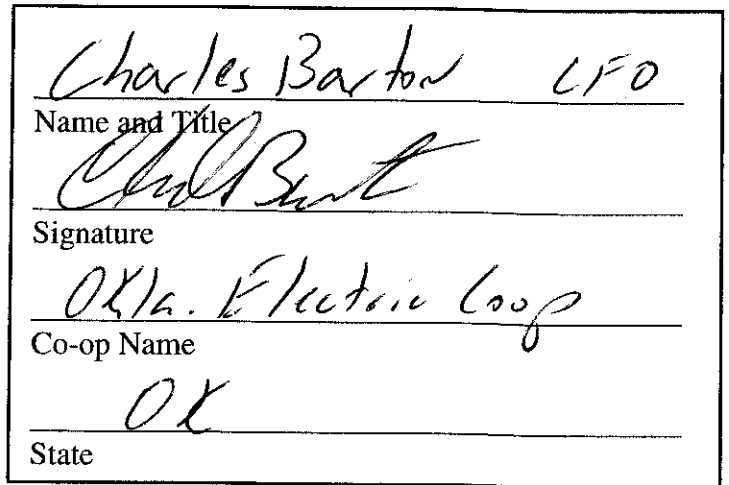 Charles Barton CFO
Name and Title
Signature
Okla. Electric Coop
Co-op Name
OK
State